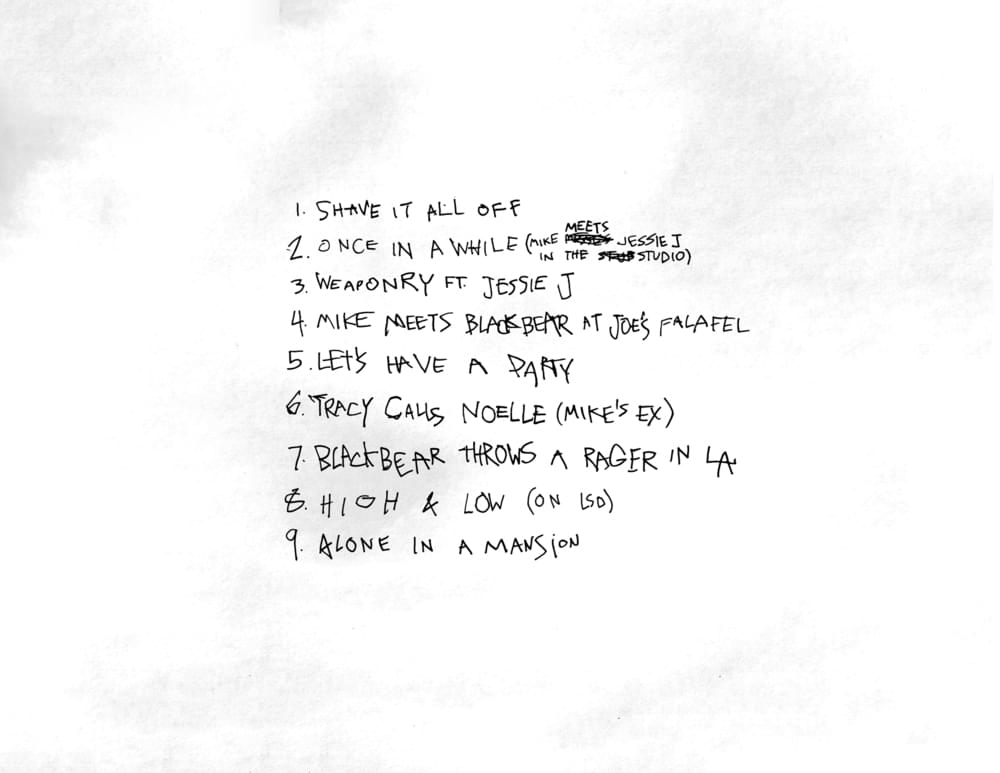 1. SHAVE IT ALL OFF
2. ONCE IN A WHILE (MIKE MEETS JESSIE J
IN THE STUDIO)
3. WEAPONRY FT. JESSIE J
4. MIKE MEETS BLACKBEAR AT JOE'S FALAFEL
5. LET'S HAVE A PARTY
6. TRACY CALLS NOELLE (MIKE'S EX)
7. BLACKBEAR THROWS A RAGER IN LA
8. HIGH & LOW (ON LSD)
9. ALONE IN A MANSION